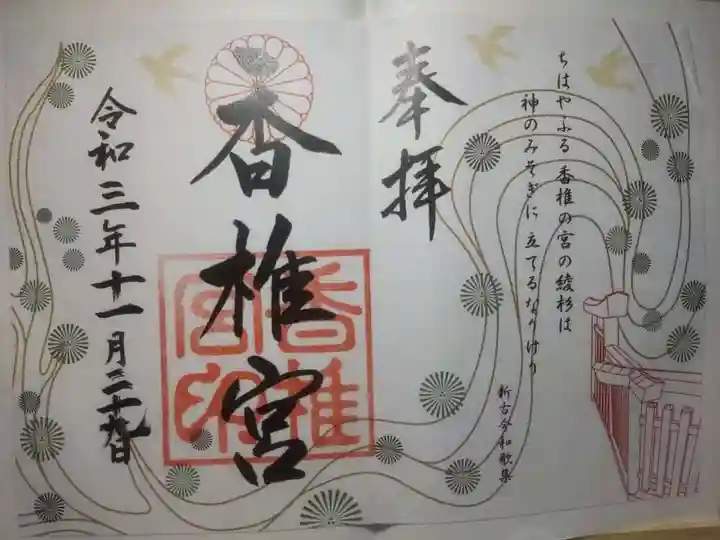 奉拝
ちはやふる 香椎の宮の綾杉は
神のみそぎに 立てるなりけり
新古今和歌集
香椎宮
香椎宮印
令和三年十一月二十九日